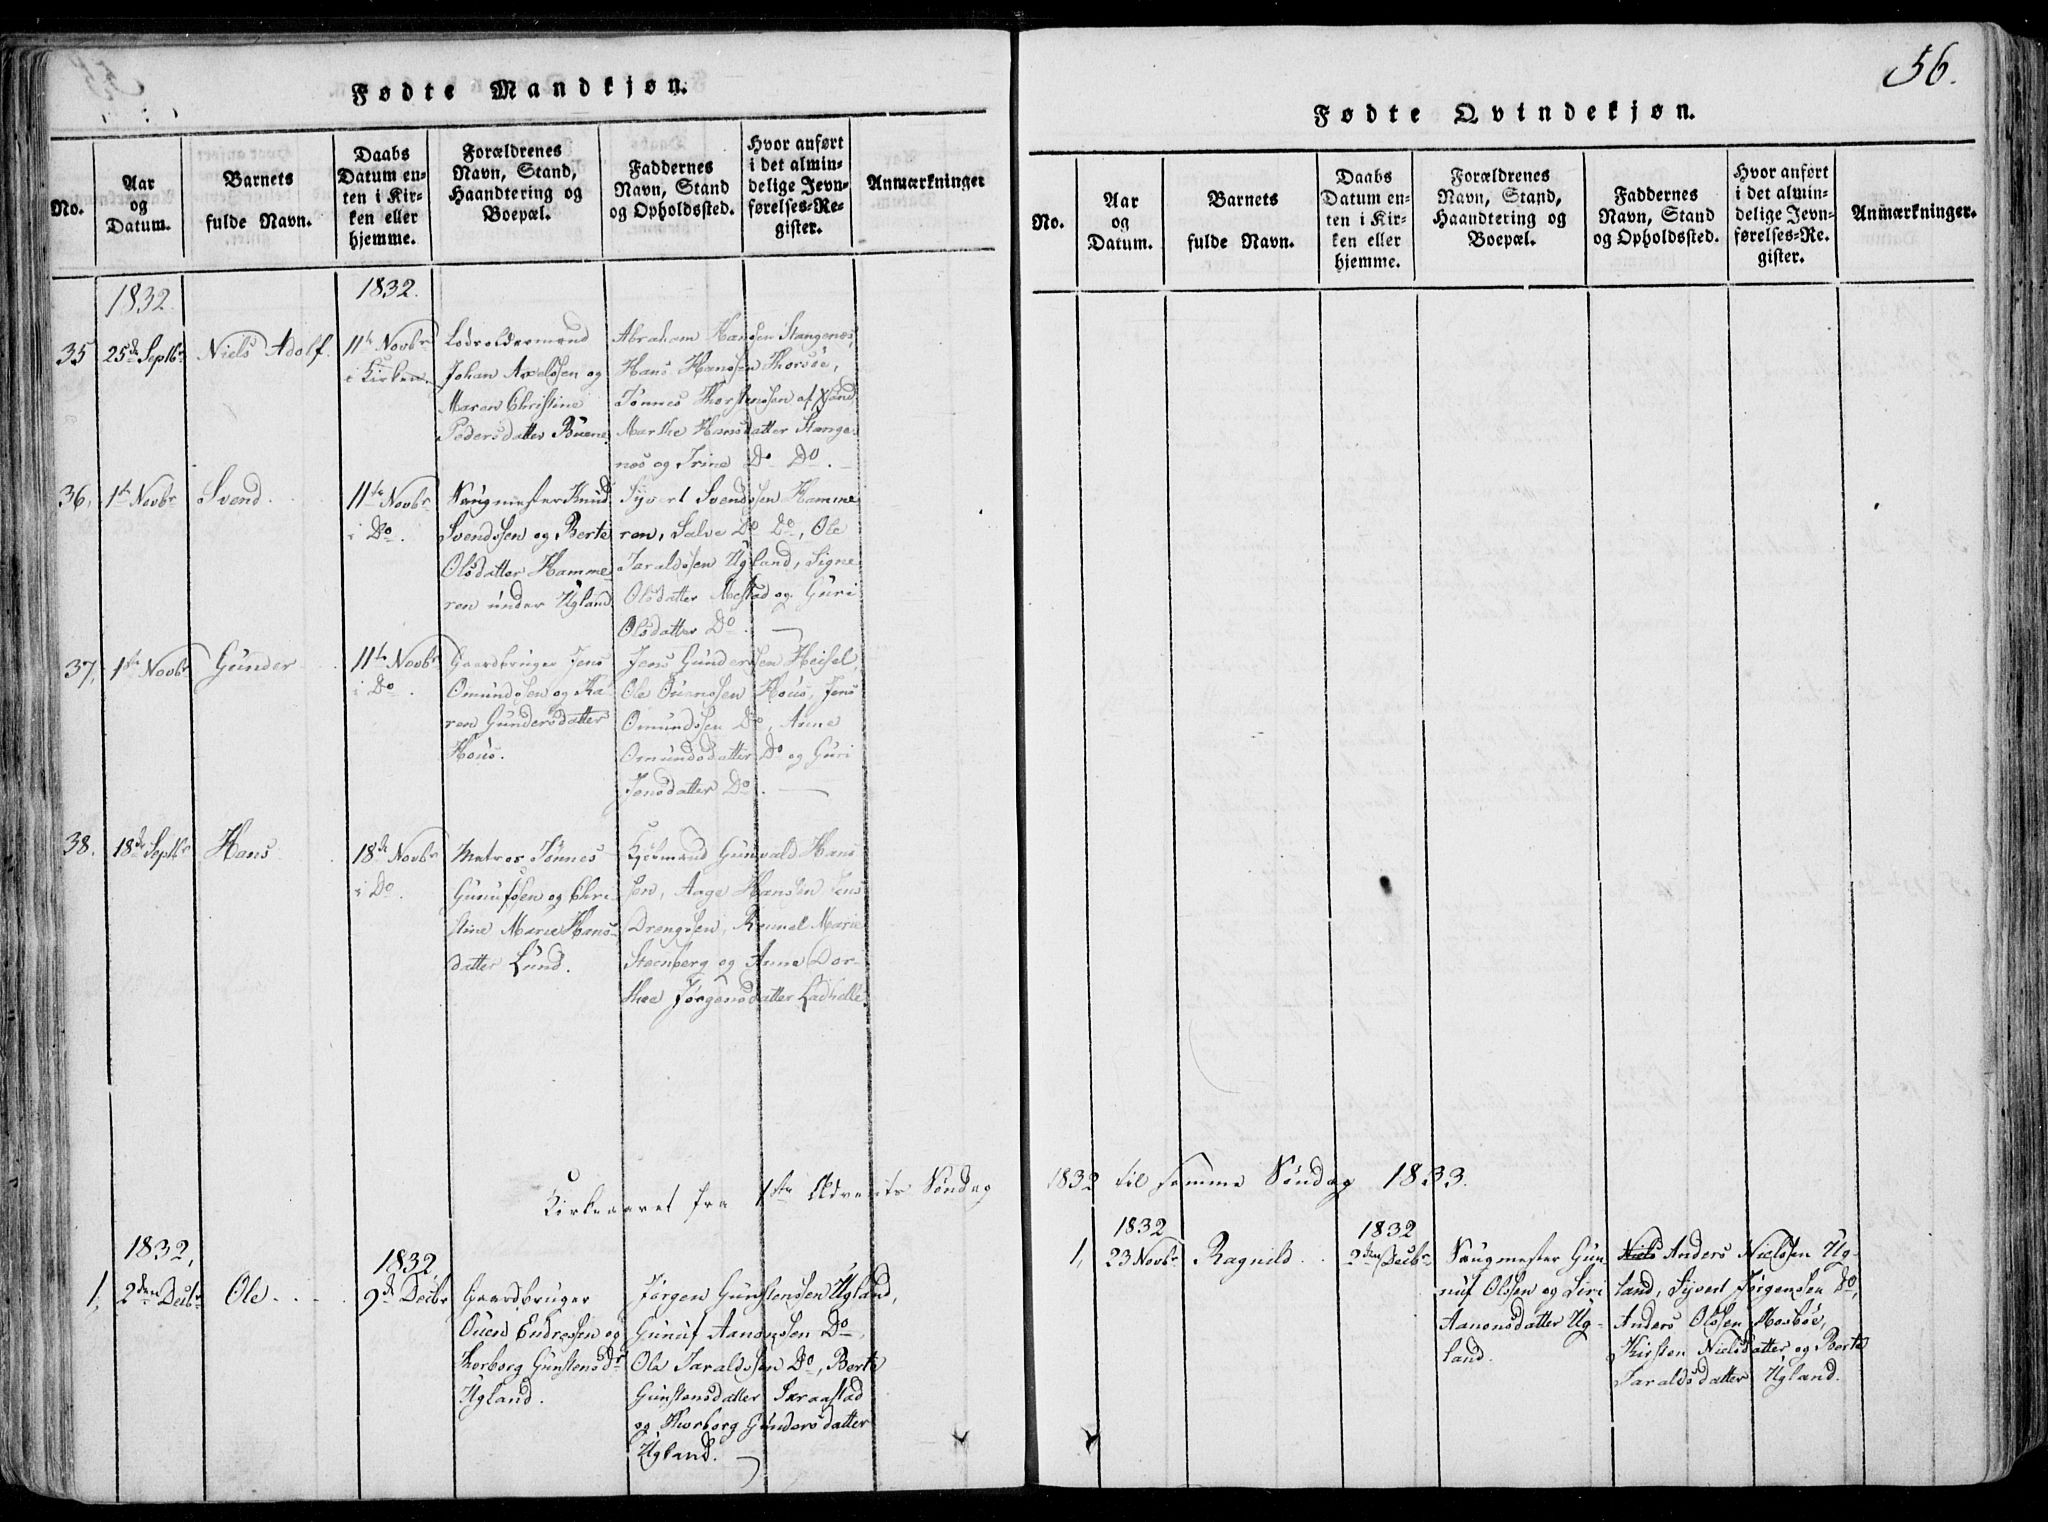 Fødte Mandkjøn.
No.
Aar
og
Datum.
Barnets
fulde Navn.
Daabs
Datum en-
ten i Kir-
ken eller
hjemme.
Forældrenes
Navn, Stand,
Haandtering og
Boepæl.
Faddernes
Navn, Stand
og Opholdssted.
Hvor anført
i det almin-
delige Jevn-
førelses-Re-
gister.
Anmærkninger
1832.
1832.
35
25de Septbr
Niels Adolf.
11te Novbr
i Kirken
Lodsoldermand
Johan Axelssen og
Maren Christine
Pedersdatter Buene
Abraham Hanssen Stangenes,
Hans Hanssen Thorsøe,
Tønnes Thorstenssen af
Marthe Hansdatter Stange-
nes og Trine Do Do.
36,
1te Novbr
Svend.
11te Novbr
i Do.
Saugmester Knud
Svendssen og Berte
Olsdatter Hamme-
ren under Ugland
Syvert Svendssen Hamme-
ren, Salve Do Do, Ole
Taraldssen Ugland, Signe
Olsdatter Mestad og Guri
Olsdatter Do.
37,
1te Novbr
Gunder
11te Novbr
i Do.
Gaardbruger Jens
Omundssen og Ka-
ren Gundersdatter
Hous.
Jens Gunderssen Heisel,
Ole Ouenssen Hous, Jens
Omundssen Do, Anne
Omundsdatter Do og Guri
Jensdatter Do.
38.
18de Septbr
Hans
18de Novbr
i Do.
Matros Tønnes
Gunufssen og Chri-
stine Marie Hans-
datter Lund.
Kjøbmand Gunvald Hans-
sen, Aage Hanssen, Jens
Drengssen, Marie
Steenberg og Anne Dor-
thee Jørgensdatter
Kirkeaaret fra 1ste Advents Søndag
1832,
1,
2den Decbr
Ole
1832
9de Decbr
Gaardbruger
Ouen Endressen og
Thorborg Gunstensdr
Ugland.
Jørgen Gunstenssen Ugland,
Gunuf Aanenssen Do,
Ole Taraldssen Do, Berte
Gunstensdatter
og Thorborg Gundersdatter
Ugland.
56.
Fødte Qvindekjøn.
No.
Aar
og
Datum.
Barnets
fulde Navn.
Daabs
Datum en-
ten i Kir-
ken eller
hjemme.
Forældrenes
Navn, Stand,
Haandtering og
Boepæl.
Faddernes
Navn, Stand
og Opholdssted.
Hvor anført
i det almin-
delige Jevn-
førelses-Re.
gister.
Anmærkninger.
1832 til samme Søndag 1833.
1832
1,
23 Novbr
Ragnild
1832
2den Decbr
Saugmester Gun-
nuf Olssen og Siri
Aanonsdatter Ug-
land.
Niels Anders Nielssen Ug-
land, Syvert Jørgenssen Do,
Anders Olssen Mosbøe,
Kirsten Nielsdatter og Berte
Taraldsdatter Ugland.